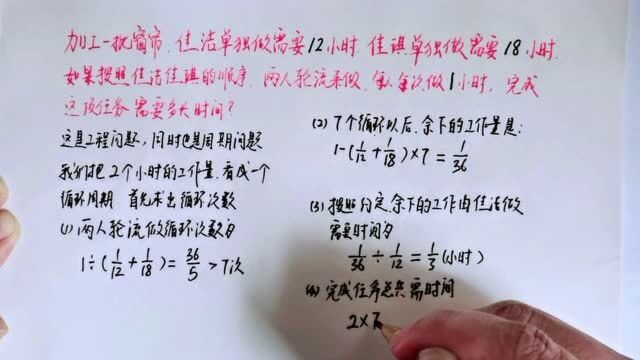 加工一批窗帘,佳洁单独做需要12小时,佳琪单独做需要18小时,
如果按照佳洁佳琪的顺序,两人轮流来做,每次做1小时,完成
这项任务需要多大时间?
这是工程问题,同时也是周期问题
我们把2个小时的工作量,看成一个
循环周期 首先求出循环次数
(1) 两人轮流做循环次数为
1÷(1/12+1/18)=36/5>7次
(2) 7个循环以后,余下的工作量是:
1-(1/12+1/18)×7=1/36
(3) 按照约定,余下的工作由佳洁做
需要时间为
1/36÷1/12=1/3(小时)
(4) 完成任务总共需时间
2×7